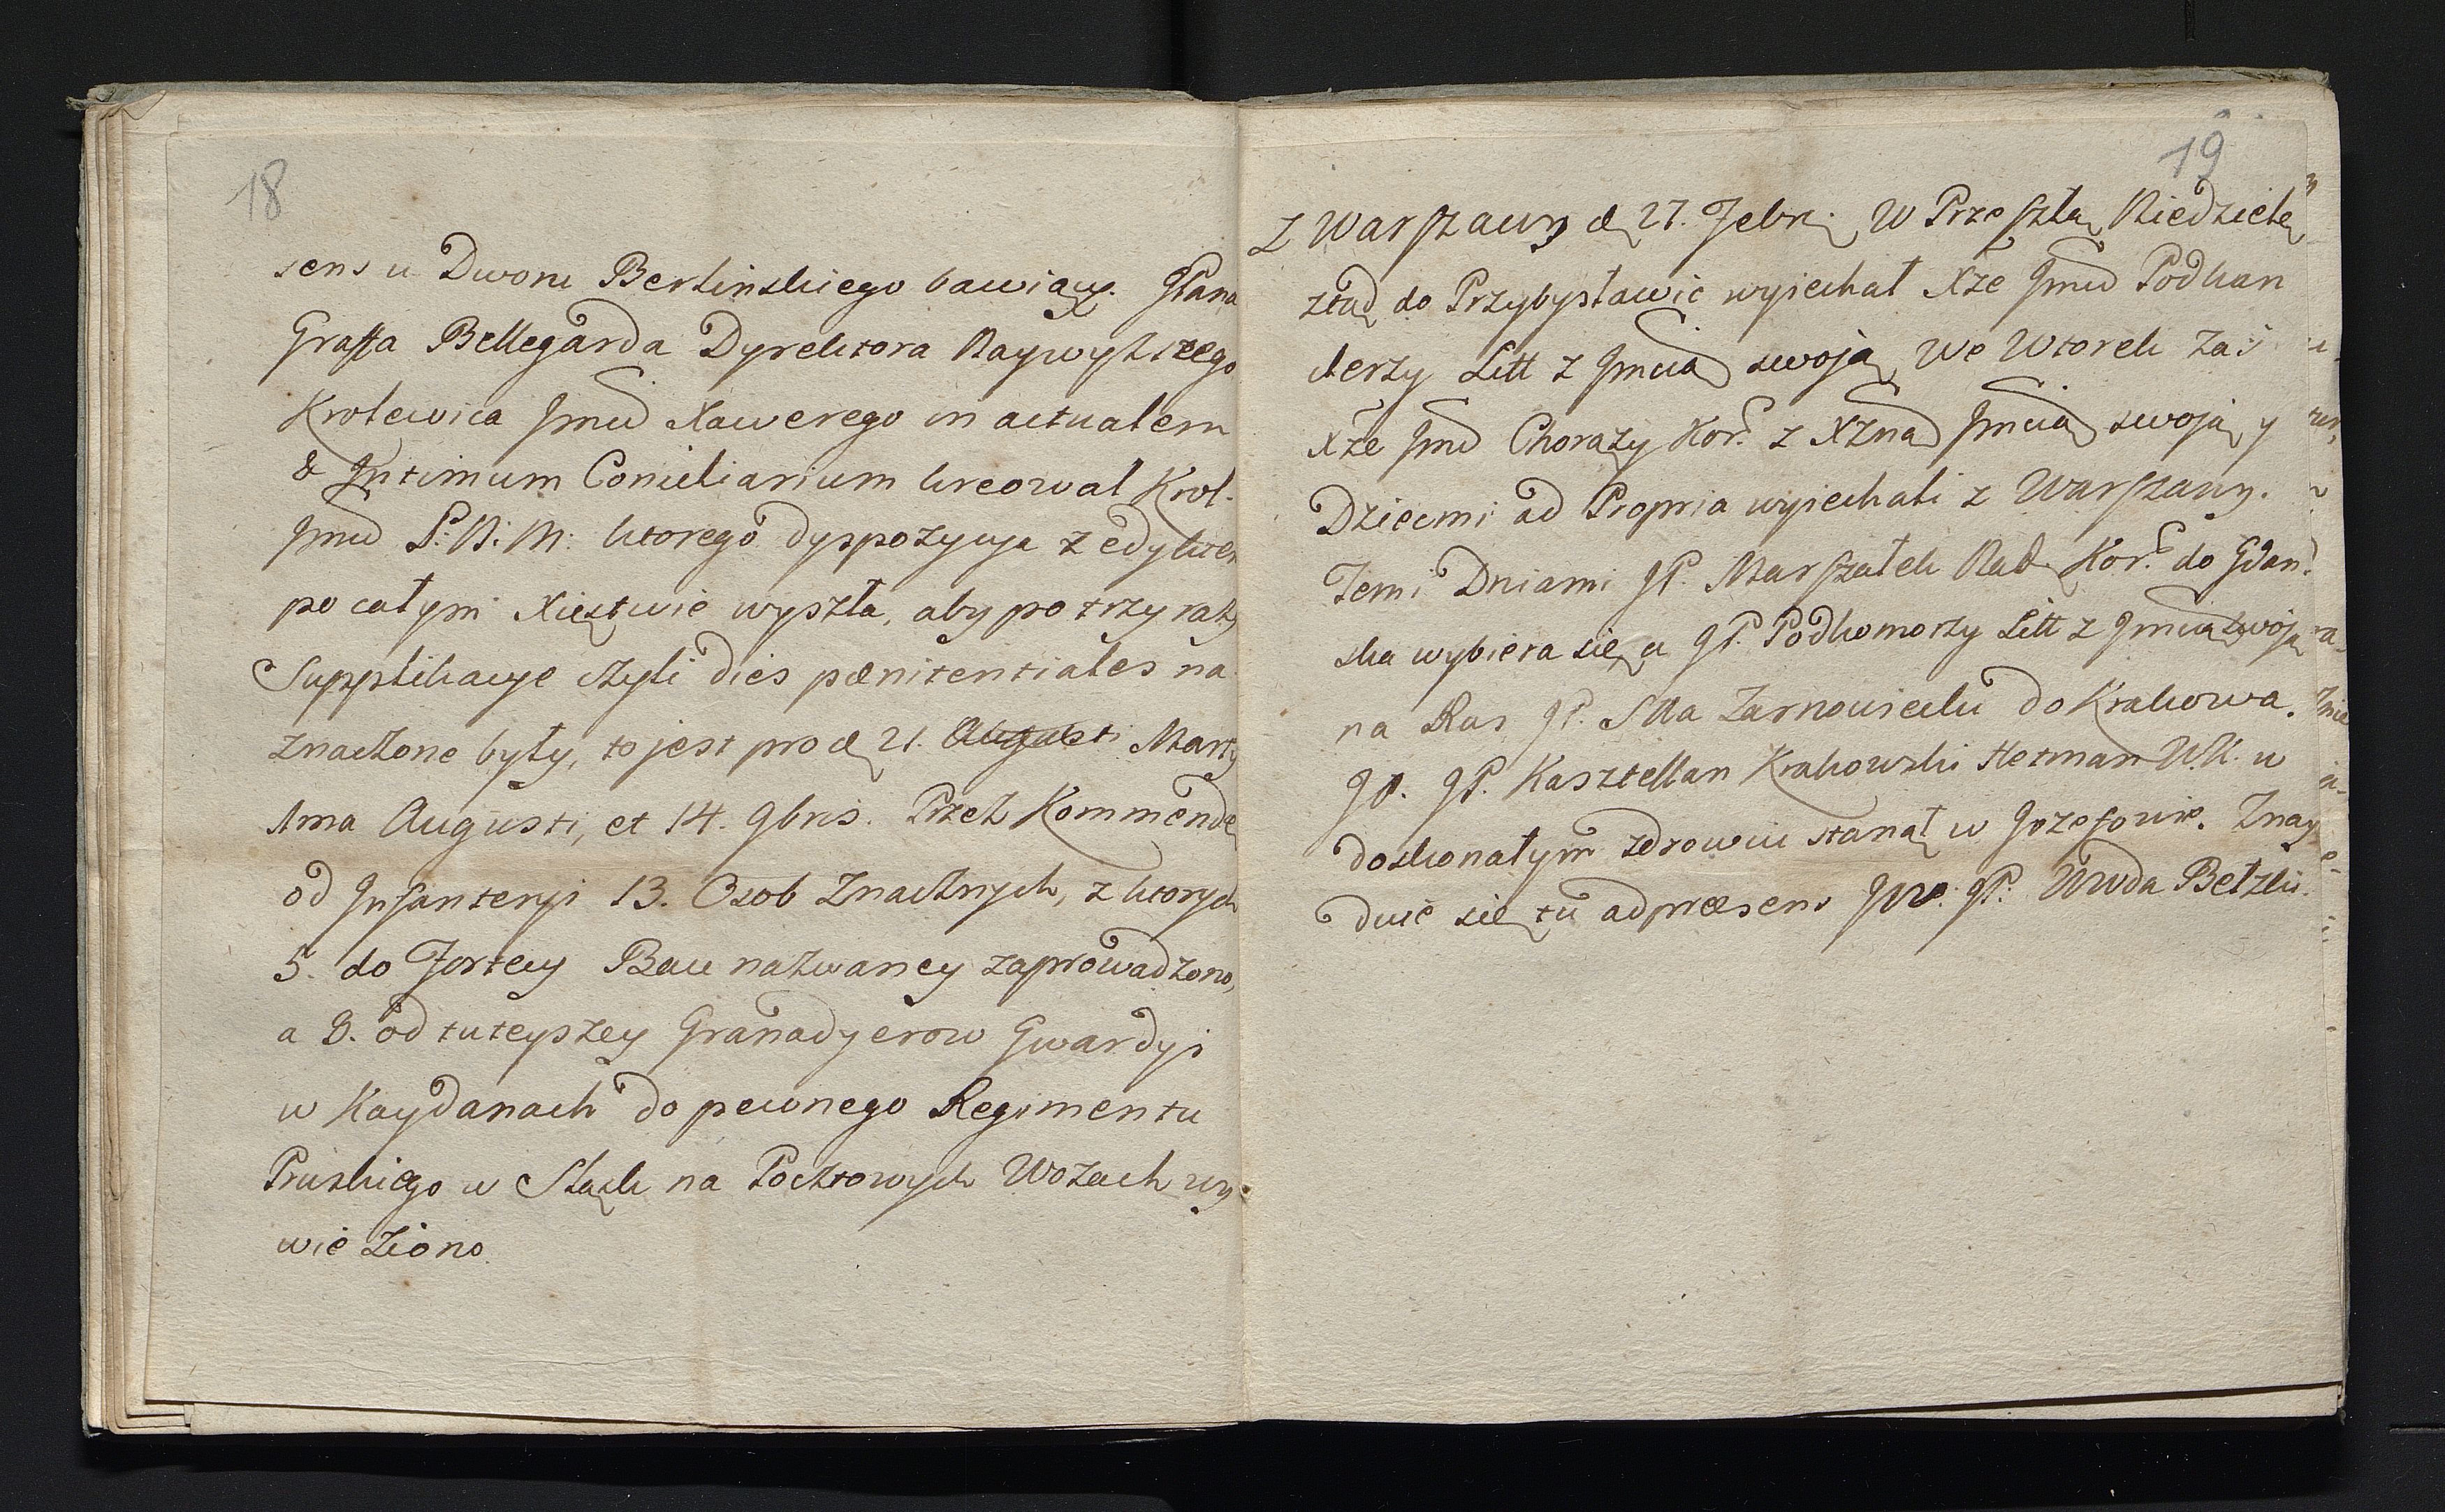 18
sens u Dworu Berlinskiego bawiący. JPana
Graffa Bellegarda Dyrektora Naywyższego
Krolewica Jmci Xawerego in actualem
& Intimum Consiliarium kreował Krol.
Jmci P: N: M: ktorego dyspozycya z edyktem
po całym Xięstwie wyszła, aby po trzy razy
Supplikacye czyli dies pœnitentiales na
znaczone były, to jest pro d 21. Augusti Marty
1ma Augusti, et 14. 9bris. Przez Kommendę
od Infanteryi 13. Osob Znacznych, z ktorych
5. do Fortecy Bau nazwaney zaprowadzono,
a 8. od tuteyszey Granadyerow Gwardyi
w Kaydanach do pewnego Regimentu
Pruskiego w Sląsk na Pocztowych Wozach wy
wieziono
19
Z Warszawy d 27. Febr: W Przeszłą Niedzielę
ztąd do Przybysławic wyiechał Xże Jmci Podkan
clerzy Litt z Jmcią swoją, We Wtorek zaś
Xże Jmć Chorąży Kor. z Xżną Jmcią swoją y
Dziecmi ad Propria wyiechali z Warszawy.
Temi Dniami JP. Marszałek Nad. Kor. do Gdan.
ska wybiera się, a JP. Podkomorzy Litt z Jmcią swoją
na Rus JP. Stta Zarnowiecki do Krakowa.
JO. JP. Kasztellan Krakowski Hetman W.K. w
doskonałym zdrowiu stanął w Jozefowie. Znay
duie się tu ad præsens JW. JP. Wwda Bełzki.